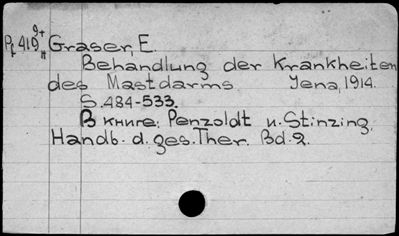 Pt 419 9+ Graser, E.
Behandlung der Krankheiten
des Mastdarms Jena, 1914.
S. 484-533.
В книге: Penzoldt u. Stinzing,
Handb. d. ges. Ther. Bd. 2.